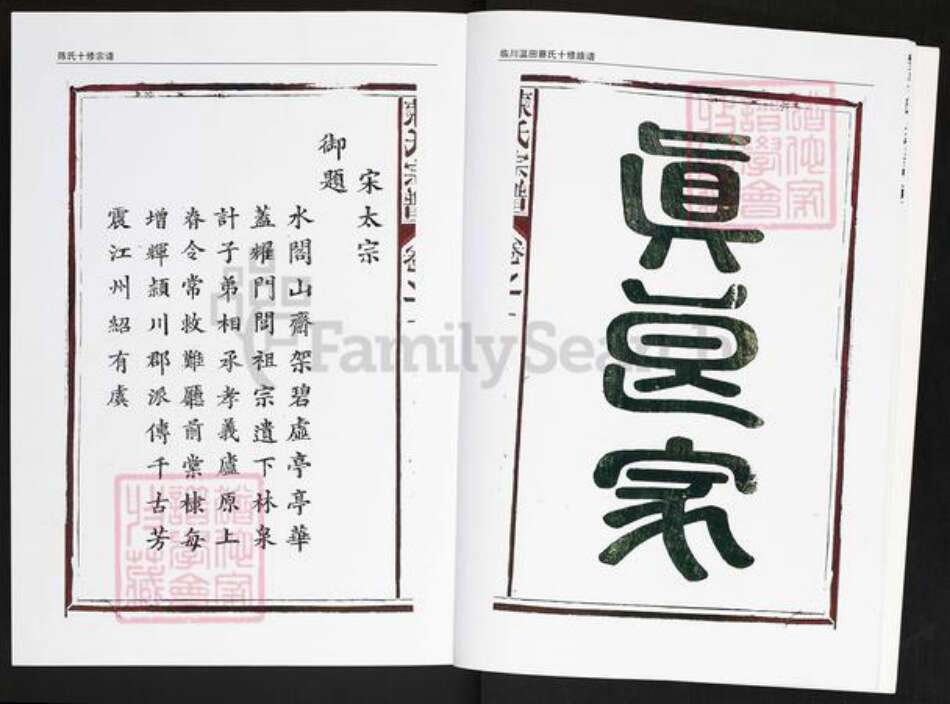 陈氏十修宗谱
宋太宗
御題
水閣山齋架碧虛亭亭華
蓋耀門閭祖宗遺下林泉
計子弟相承孝義廬原上
脊令常救難廳前棠棣每
增輝潁川郡派傳千古芳
震江州紹有虞
陳氏宗譜
卷之一
FamilySearch
陳氏宗譜
卷之一
眞
良
家